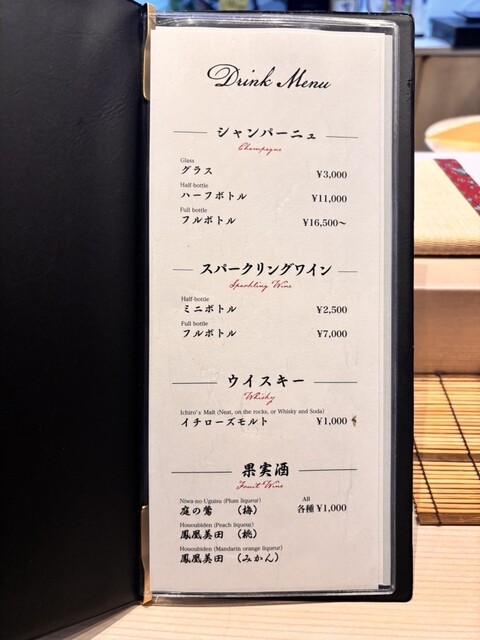 Drink Menu
シャンパーニュ
Champagne
Glass
グラス ¥3,000
Half-bottle
ハーフボトル ¥11,000
Full bottle
フルボトル ¥16,500〜
スパークリングワイン
Sparkling Wine
Half-bottle
ミニボトル ¥2,500
Full bottle
フルボトル ¥7,000
ウイスキー
Whisky
Ichiro's Malt (Neat, on the rocks, or Whisky and Soda)
イチローズモルト ¥1,000
果実酒
Fruit Wine
Niwa-no-Uguisu (Plum liqueur) All
庭の鶯 (梅) 各種 ¥1,000
Hououbiden (Peach liqueur)
鳳凰美田 (桃)
Hououbiden (Mandarin orange liqueur)
鳳凰美田 (みかん)